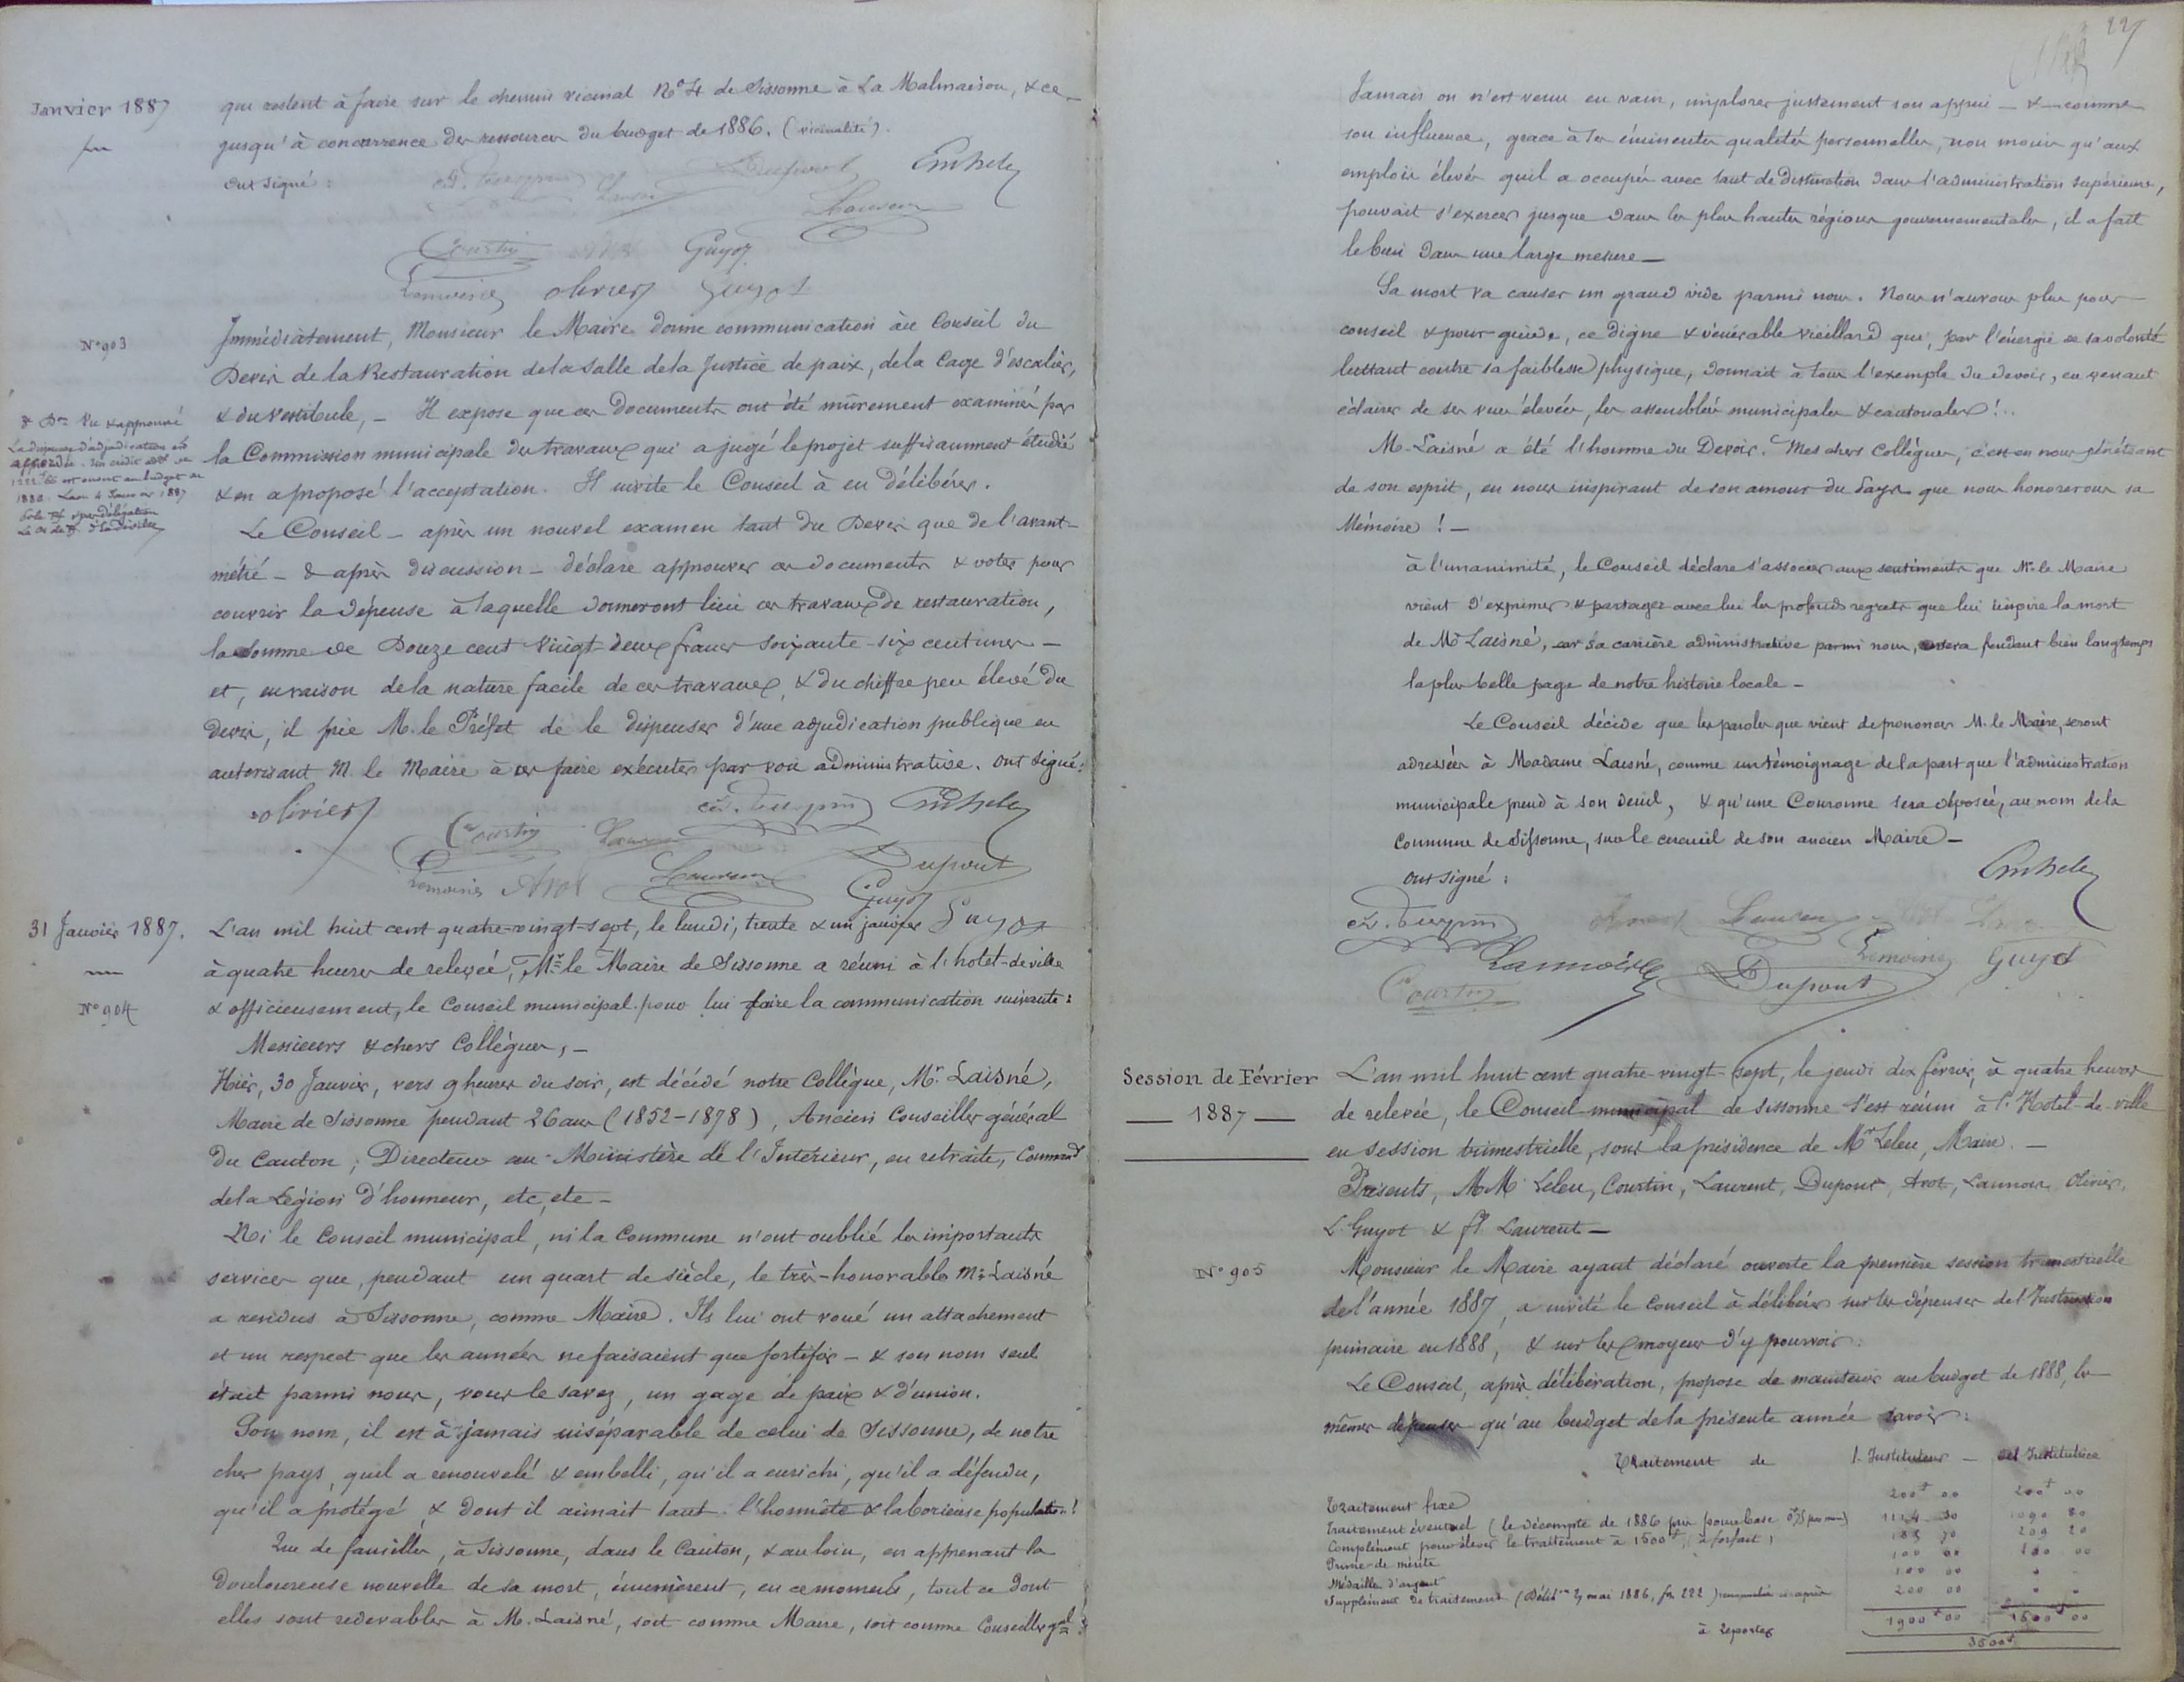 Janvier 1887
que restent à faire sur le chemin vicinal No 4 de Sissonne à La Malmaison, & ce
jusqu'à concurrence des ressources du budget de 1886. (vicinalité).
ont signé :
Dupont
Courtin Guyot
Lemoine olivier Guyot
No 903
Immédiatement, Monsieur le Maire donne communication au Conseil du
Devis de la Restauration de la salle de la Justice de paix, de la Cage d'escalier,
& du vestibule, – Il expose que ces Documents ont été mûrement examinés par
la Commission municipale des travaux qui a jugé le projet suffisamment étudié
& en a proposé l'acceptation. Il invite le Conseil à en délibérer.
Vu & approuvé
La dispense d'adjudication est
accordée. Un crédit de
1222 66 est ouvert au budget de
1887
par délégation
Le Conseil – après un nouvel examen tant du Devis que de l'avant-
métré – & après discussion – déclare approuver ces documents & voter pour
couvrir la dépense à laquelle donneront lieu ces travaux de restauration,
la somme de Douze cent vingt-deux francs soixante-six centimes –
et, en raison de la nature facile de ces travaux, & du chiffre peu élevé du
devis, il prie M. le Préfet de le dispenser d'une adjudication publique en
autorisant M. le Maire à les faire exécuter par voie administrative. ont signé :
olivier
Courtin
Dupont
Lemoine Arot Guyot
31 Janvier 1887.
L'an mil huit cent quatre-vingt-sept, le lundi, trente & un janvier Guyot
à quatre heures de relevée, Mr le Maire de Sissonne a réuni à l'hotel-de ville
No 904
& officieusement, le Conseil municipal pour lui faire la communication suivante :
Messieurs & chers Collègues, –
Hier, 30 Janvier, vers 9 heures du soir, est décédé notre Collègue, Mr Laisné,
Maire de Sissonne pendant 26 ans (1852-1878), Ancien Conseiller général
du Canton ; Directeur au Ministère de l'Intérieur, en retraite, Command
de la Légion d'honneur, etc, etc –
Ni le Conseil municipal, ni la Commune n'ont oublié les importants
services que, pendant un quart de siècle, le très-honorable Mr Laisné
a rendus à Sissonne, comme Maire. Ils lui ont voué un attachement
et un respect que les années ne faisaient que fortifier – & son nom seul
était parmi nous, vous le savez, un gage de paix & d'union.
Son nom, il est à jamais inséparable de celui de Sissonne, de notre
cher pays, qu'il a renouvelé & embelli, qu'il a enrichi, qu'il a défendu,
qu'il a protégé, & dont il aimait tant l'honnête & laborieuse population !
Que de familles, à Sissonne, dans le Canton, & au loin, en apprenant la
douloureuse nouvelle de sa mort, énumèrent, en ce moment, tout ce dont
elles sont redevables à M. Laisné, soit comme Maire, soit comme Conseiller gal !
227
Jamais on n'est venu en vain, implorer justement son appui – & – comme
son influence, grace à ses éminentes qualités personnelles, non moins qu'aux
emplois élevés qu'il a occupés avec tant de distinction dans l'administration supérieure,
pouvait s'exercer jusque dans les plus hautes régions gouvernementales, il a fait
le bien dans une large mesure –
Sa mort va causer un grand vide parmi nous. Nous n'aurons plus pour
conseil & pour guide, ce digne & vénérable vieillard qui, par l'énergie de sa volonté
luttant contre sa faiblesse physique, donnait à tous l'exemple du devoir, en venant
éclairer de ses vues élevées, les assemblées municipales & cantonales !..
M. Laisné a été l'homme du Devoir. Mes chers Collègues, c'est en nous pénétrant
de son esprit, en nous inspirant de son amour du Pays que nous honorerons sa
Mémoire ! –
à l'unanimité, le Conseil déclare s'associer aux sentiments que Mr le Maire
vient d'exprimer & partager avec lui les profonds regrets que lui inspire la mort
de Mr Laisné, car sa carrière administrative parmi nous, restera pendant bien longtemps
la plus belle page de notre histoire locale –
Le Conseil décide que les paroles que vient de prononcer M. le Maire, seront
adressées à Madame Laisné, comme un témoignage de la part que l'administration
municipale prend à son deuil, & qu'une Couronne sera déposée, au nom de la
Commune de Sissonne, sur le cercueil de son ancien Maire –
ont signé :
Laurent
Lannois Lemoine Guyot
Courtin Dupont
Session de Février
1887
L'an mil huit cent quatre-vingt-sept, le jeudi dix février, à quatre heures
de relevée, le Conseil municipal de Sissonne s'est réuni à l'Hotel-de-ville
en session trimestrielle, sous la présidence de Mr Leleu, Maire. –
Présents, M M Leleu, Courtin, Laurent, Dupont, Arot, Lannois, Olivier,
L. Guyot & ft Laurent –
No 905
Monsieur le Maire ayant déclaré ouverte la première session trimestrielle
de l'année 1887, a invité le Conseil à délibérer sur les dépenses de l'Instruction
primaire en 1888, & sur les moyens d'y pourvoir :
Le Conseil, après délibération, propose de maintenir au budget de 1888, les
mêmes dépenses qu'au budget de la présente année savoir :
Traitement de l'Instituteur – de l'Institutrice
Traitement fixe 200f 00 200f 00
Traitement éventuel (le décompte de 1886 pris pour base 1114 30 1090 80
Complément pour élever le traitement à 1500f, (à forfait) 185 70 209 20
Prime de mérite 100 00 100 00
Médaille d'argent 100 00 " "
Supplément de traitement (Délib on mai 1886, fo 222) 200 00 " "
1900f 00 1600f 00
à reporter 3500f